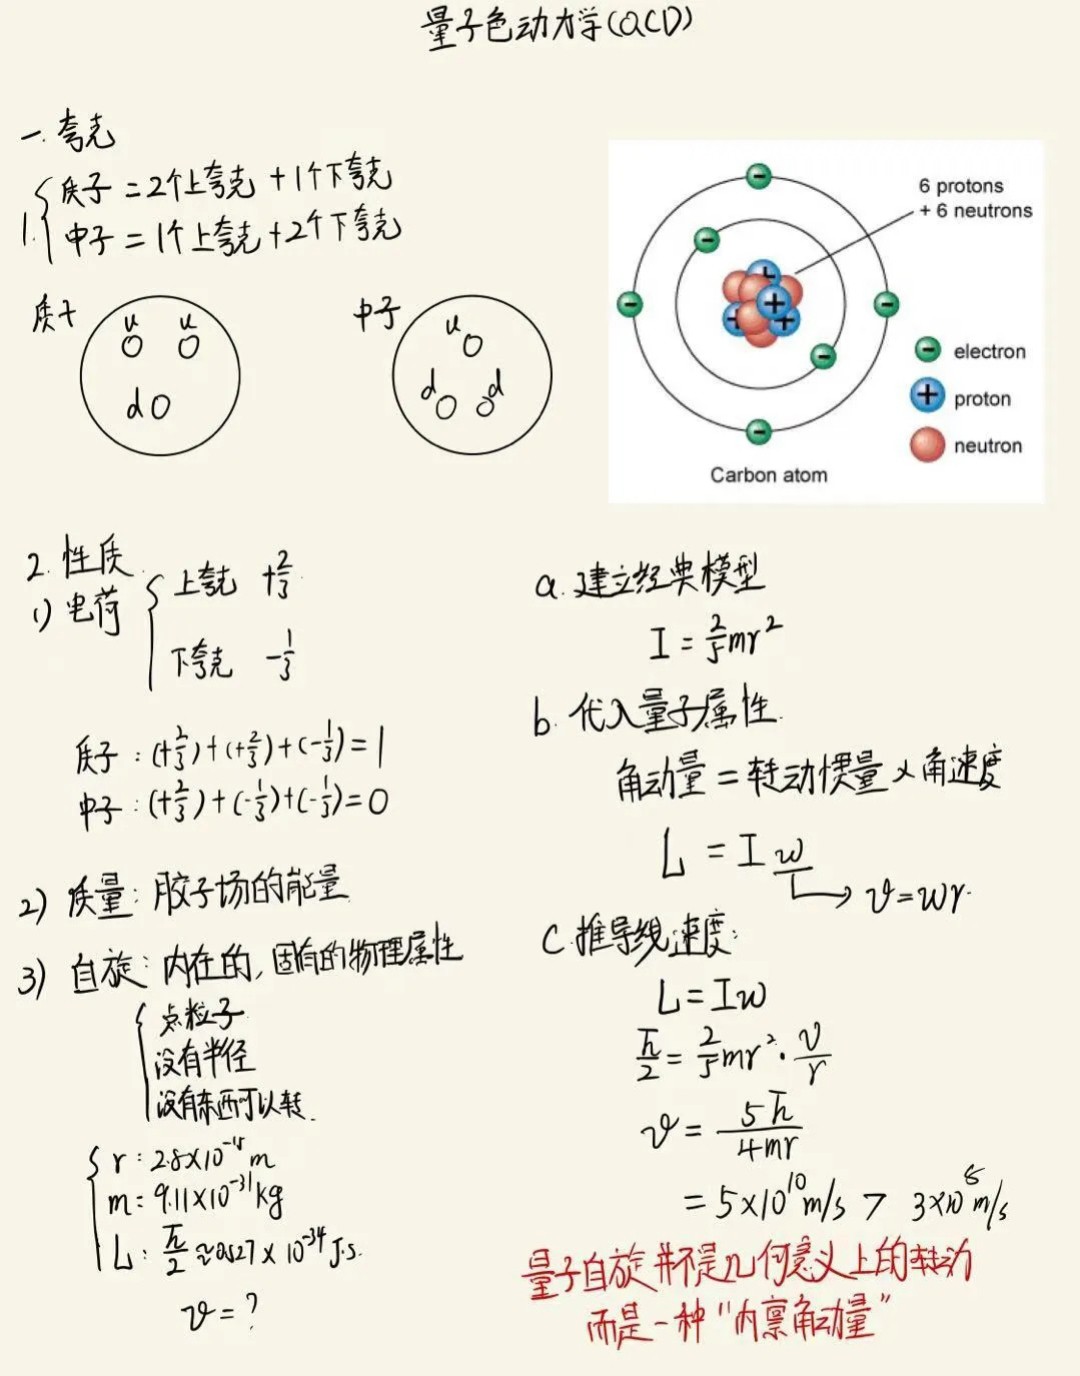 量子色动力学(QCD)
一. 夸克
1. 质子 = 2个上夸克 + 1个下夸克
中子 = 1个上夸克 + 2个下夸克
质子
u u
d
中子
u
d d
6 protons
+ 6 neutrons
electron
proton
neutron
Carbon atom
2. 性质
1) 电荷
上夸克 +2/3
下夸克 -1/3
质子: (+2/3)+(+2/3)+(-1/3)=1
中子: (+2/3)+(-1/3)+(-1/3)=0
2) 质量: 胶子场的能量
3) 自旋: 内在的, 固有的物理属性
点粒子
没有半径
没有东西可以转.
r: 2.8×10⁻¹⁵ m
m: 9.11×10⁻³¹ kg
L: ħ/2 ≈ 0.527 × 10⁻³⁴ J·s.
v = ?
a. 建立经典模型
I = 2/5 mr²
b. 代入量子属性.
角动量 = 转动惯量 × 角速度
L = I w
→ v = wr.
C. 推导线速度:
L = Iw
ħ/2 = 2/5 mr² · v/r
v = 5ħ/4mr
= 5×10¹⁰ m/s > 3×10⁸ m/s
量子自旋并不是几何意义上的转动
而是一种 "内禀角动量"